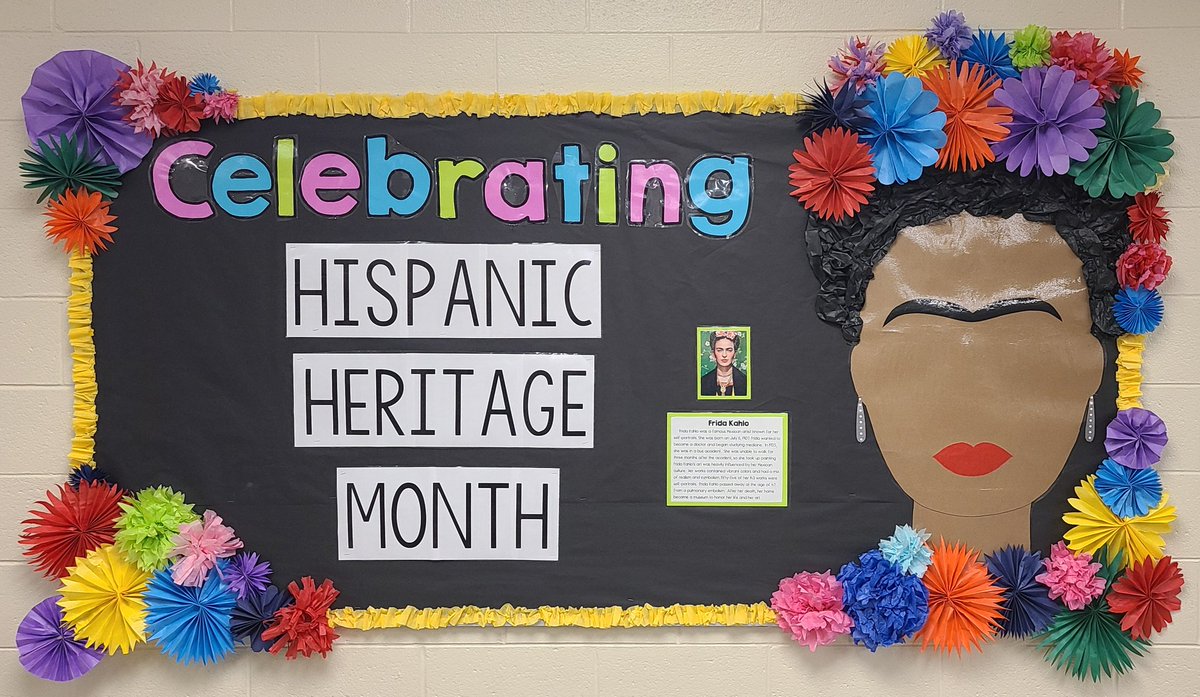 Celebrating
HISPANIC
HERITAGE
MONTH
Frida Kahlo
Frida Kahlo was a famous Mexican artist known for her
self-portraits. She was born on July 6, 1907. Frida wanted to
become a doctor and began studying medicine. In 1925,
she was in a bus accident. She was unable to walk for
three months after the accident, so she took up painting.
Frida Kahlo's art was heavily influenced by her Mexican
culture. Her works contained vibrant colors and had a mix
of realism and symbolism. Fifty-five of her 143 works were
self-portraits. Frida Kahlo passed away at the age of 47
from a pulmonary embolism. After her death, her home
became a museum to honor her life and her art.